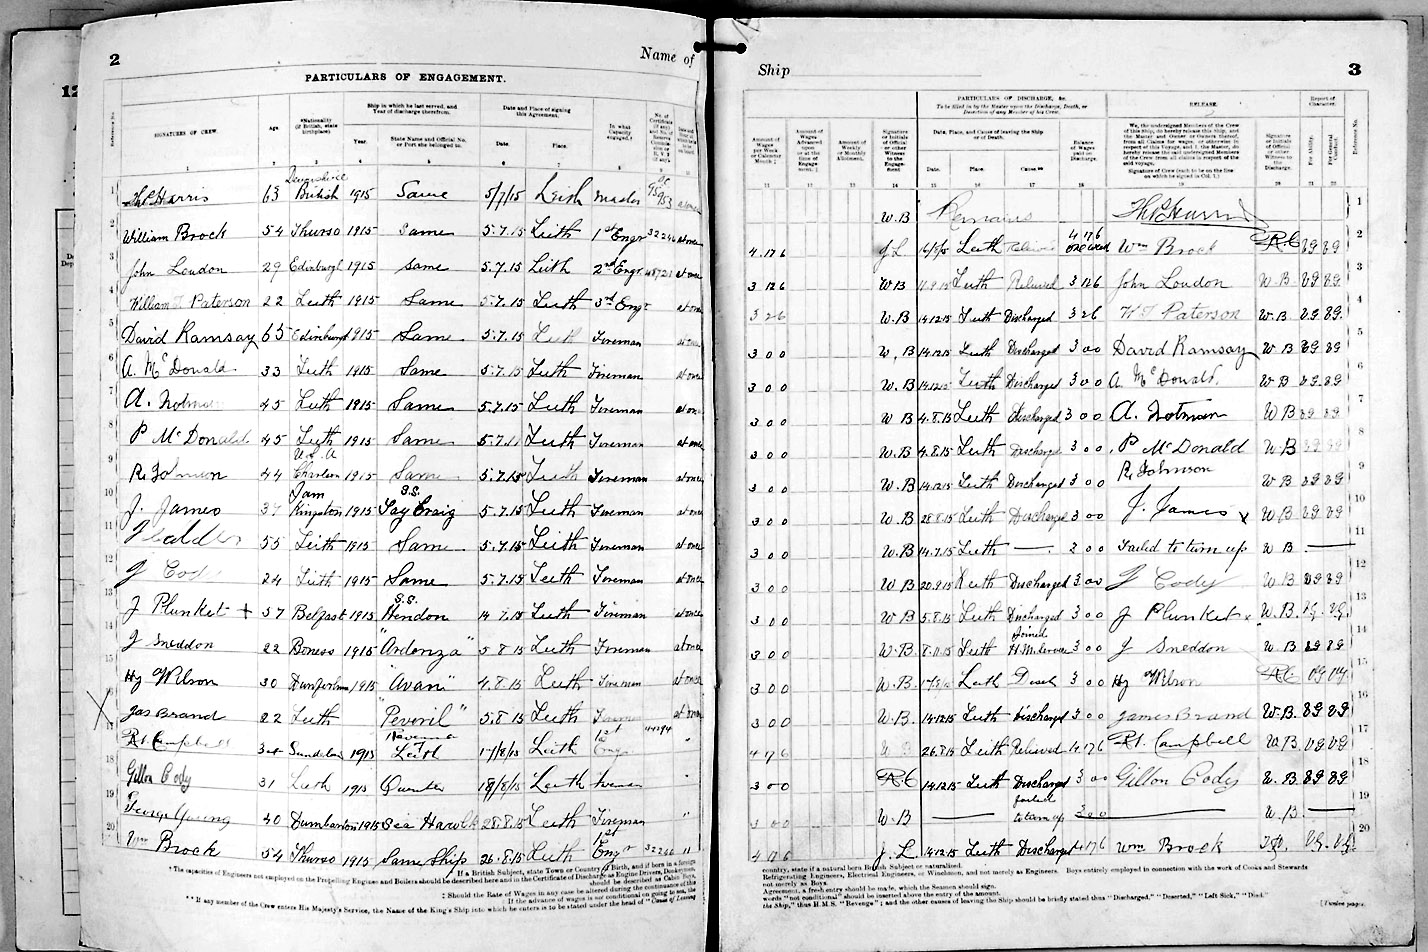 2
Name of
PARTICULARS OF ENGAGEMENT.
SIGNATURES OF CREW.
Age
*Nationality (If British, state birthplace).
Ship in which he last served, and Year of discharge therefrom.
Year.
State Name and Official No. or Port she belonged to.
Date and Place of signing this Agreement.
Date.
Place.
In what Capacity engaged.
Devonshire
1 Thos Harris 63 British 1915 Same 5/7/15 Leith Master at once
2 William Brock 54 Thurso 1915 Same 5.7.15 Leith 1st Engr 32246 at once
3 John Loudon 29 Edinburgh 1915 Same 5.7.15 Leith 2nd Engr at once
4 William T Paterson 22 Leith 1915 Same 5.7.15 Leith 3rd Engr at once
5 David Ramsay 65 Edinburgh 1915 Same 5.7.15 Leith Fireman at once
6 A. McDonald 33 Leith 1915 Same 5.7.15 Leith Fireman at once
7 A. Notman 45 Leith 1915 Same 5.7.15 Leith Fireman at once
8 P McDonald 45 Leith 1915 Same 5.7.15 Leith Fireman at once
U.S.A
9 R. Johnson 44 1915 Same 5.7.15 Leith Fireman at once
Jam S.S.
10 J. James Kingston 1915 Craig 5.7.15 Leith Fireman at once
11 55 Leith 1915 Same 5.7.15 Leith Fireman at once
12 J Cody 24 Leith 1915 Same 5.7.15 Leith Fireman at once
S.S.
13 J Plunket + 57 Belfast 1915 Hendon 14.7.15 Leith Fireman at once
14 J Sneddon 22 Boness 1915 "Ardenza" 5 8 15 Leith Fireman at once
15 Hy Wilson 30 Dunfermline 1915 "Avani" 4.8.15 Leith Fireman at once
16 Jas Brand 22 Leith 1915 "Peveril" 5.8.15 Leith Fireman at once
17 Rt Campbell 1915 17/8/15 Leith 1st Engr 44294 "
18 Gillon Cody 31 Leith 1915 18/8/15 Leith Fireman "
19 George Young 40 Dumbarton 1915 Sea 28.8.15 Leith Fireman "
20 Wm Brock 54 Thurso 1915 Same Ship 26.8.15 Leith 1st Engr 32246 11
* The capacities of Engineers not employed on the Propelling Engines and Boilers should be described here and in the Certificate of Discharge as Engine Drivers, Donkeymen,
‡ Should the Rate of Wages in any case be altered during the continuance of the
** If any member of the Crew enters His Majesty's Service, the Name of the King's Ship into which he enters is to be stated under the head of "Cause of Leaving
Ship
3
PARTICULARS OF DISCHARGE, &c.
To be filled in by the Master upon the Discharge, Death, or Desertion of any Member of his Crew.
RELEASE.
Report of Character.
Reference No.
Amount of Wages per Week or Calendar Month
Amount of Wages Advanced upon or at the time of Engagement.
Amount of Weekly or Monthly Allotment.
Signature or Initials of Official or other Witness to the Engagement
Date, Place, and Cause of leaving this Ship or of Death.
Date. Place. Cause.**
Balance of Wages paid on Discharge.
We, the undersigned Members of the Crew of this Ship, do hereby release this Ship, and the Master and Owner or Owners thereof, from all Claims for wages, or otherwise in respect of this Voyage, and I, the Master, do hereby release the undersigned Members of the Crew from all claims in respect of the said Voyage.
Signature of Crew (each to be on the line on which he signed in Col. 1.)
Signature or Initials of Official or other Witness to the Discharge.
For Ability. For General Conduct.
11 12 13 14 15 16 17 18 19 20 21 22
W.B Remains Thos Harris 1
4 17 6 J.L Leith 4 17 6 Wm Brock R.C VG VG 2
3 12 6 WB 11.9.15 Leith Relieved 3 12 6 John Loudon W.B. VG VG 3
3 2 6 W.B 14.12.15 Leith Discharged 3 2 6 W T Paterson W.B. VG VG 4
3 0 0 W.B 14.12.15 Leith Discharged 3 0 0 David Ramsay W B VG VG 5
3 0 0 W.B 14.12.15 Leith Discharged 3 0 0 A. McDonald. W B VG VG 6
3 0 0 W B 4.8.15 Leith Discharged 3 0 0 A. Notman W B VG VG 7
3 0 0 W.B 4.8.15 Leith Discharged 3 0 0 P McDonald W B VG VG 8
3 0 0 W.B 14.12.15 Leith Discharged 3 0 0 R. Johnson W B VG VG 9
3 0 0 W.B 28.8.15 Leith Discharged 3 0 0 J. James x W B VG VG 10
3 0 0 W.B 14.7.15 Leith — 2 0 0 Failed to turn up W B — 11
3 0 0 W B 20.9.15 Leith Discharged 3 0 0 J Cody W.B VG VG 12
3 0 0 W B 5.8.15 Leith Discharged 3 0 0 J Plunket x W.B. V.G. V.G. 13
Joined
3 0 0 W.B. 8.11.15 Leith H.M. Service 3 0 0 J Sneddon W.B VG VG 14
3 0 0 W.B. Leith Disch 3 0 0 Hy Wilson R.C. VG VG 15
3 0 0 W.B. 14.12.15 Leith Discharged 3 0 0 James Brand W.B. VG VG 16
4 17 6 26.8.15 Leith Relieved 4 17 6 Rt. Campbell W.B. VG VG 17
3 0 0 R.C 14.12.15 Leith Discharged 3 0 0 Gillon Cody W.B VG VG 18
failed
3 0 0 W.B — to turn up 3 0 0 — W.B. — 19
4 17 6 J.L. 14.12.15 Leith Discharged 4 17 6 Wm Brock V.G. V.G. 20
country, state if a natural born British Subject or naturalized.
Refrigerating Engineers, Electrical Engineers, or Winchmen, and not merely as Engineers. Boys entirely employed in connection with the work of Cooks and Stewards
not merely as Boys.
Agreement, a fresh entry should be made, which the Seamen should sign.
words "not conditional" should be inserted above the entry of the amount.
the Ship," thus H.M.S. "Revenge"; and the other causes of leaving the Ship should be briefly stated thus "Discharged," "Deserted," "Left Sick," "Died."
[Twelve pages.